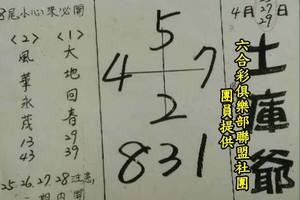 4月 25 27 29日
土庫爺
六合彩俱樂部聯盟社團
團員提供
5
4 7
2
831
8尾水心來必開
<1>
大地回春
29
39
<2>
風華永茂
13
43
25.26.27.28注意
期內開